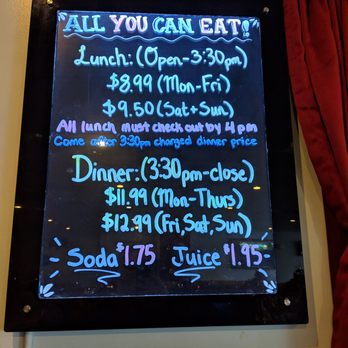 ALL YOU CAN EAT!
Lunch: (Open-3:30pm)
$8.99 (Mon-Fri)
$9.50 (Sat+Sun)
All lunch must check out by 4pm
Come after 3:30pm charged dinner price
Dinner: (3:30pm-close)
$11.99 (Mon-Thurs)
$12.99 (Fri, Sat, Sun)
Soda $1.75 Juice $1.95